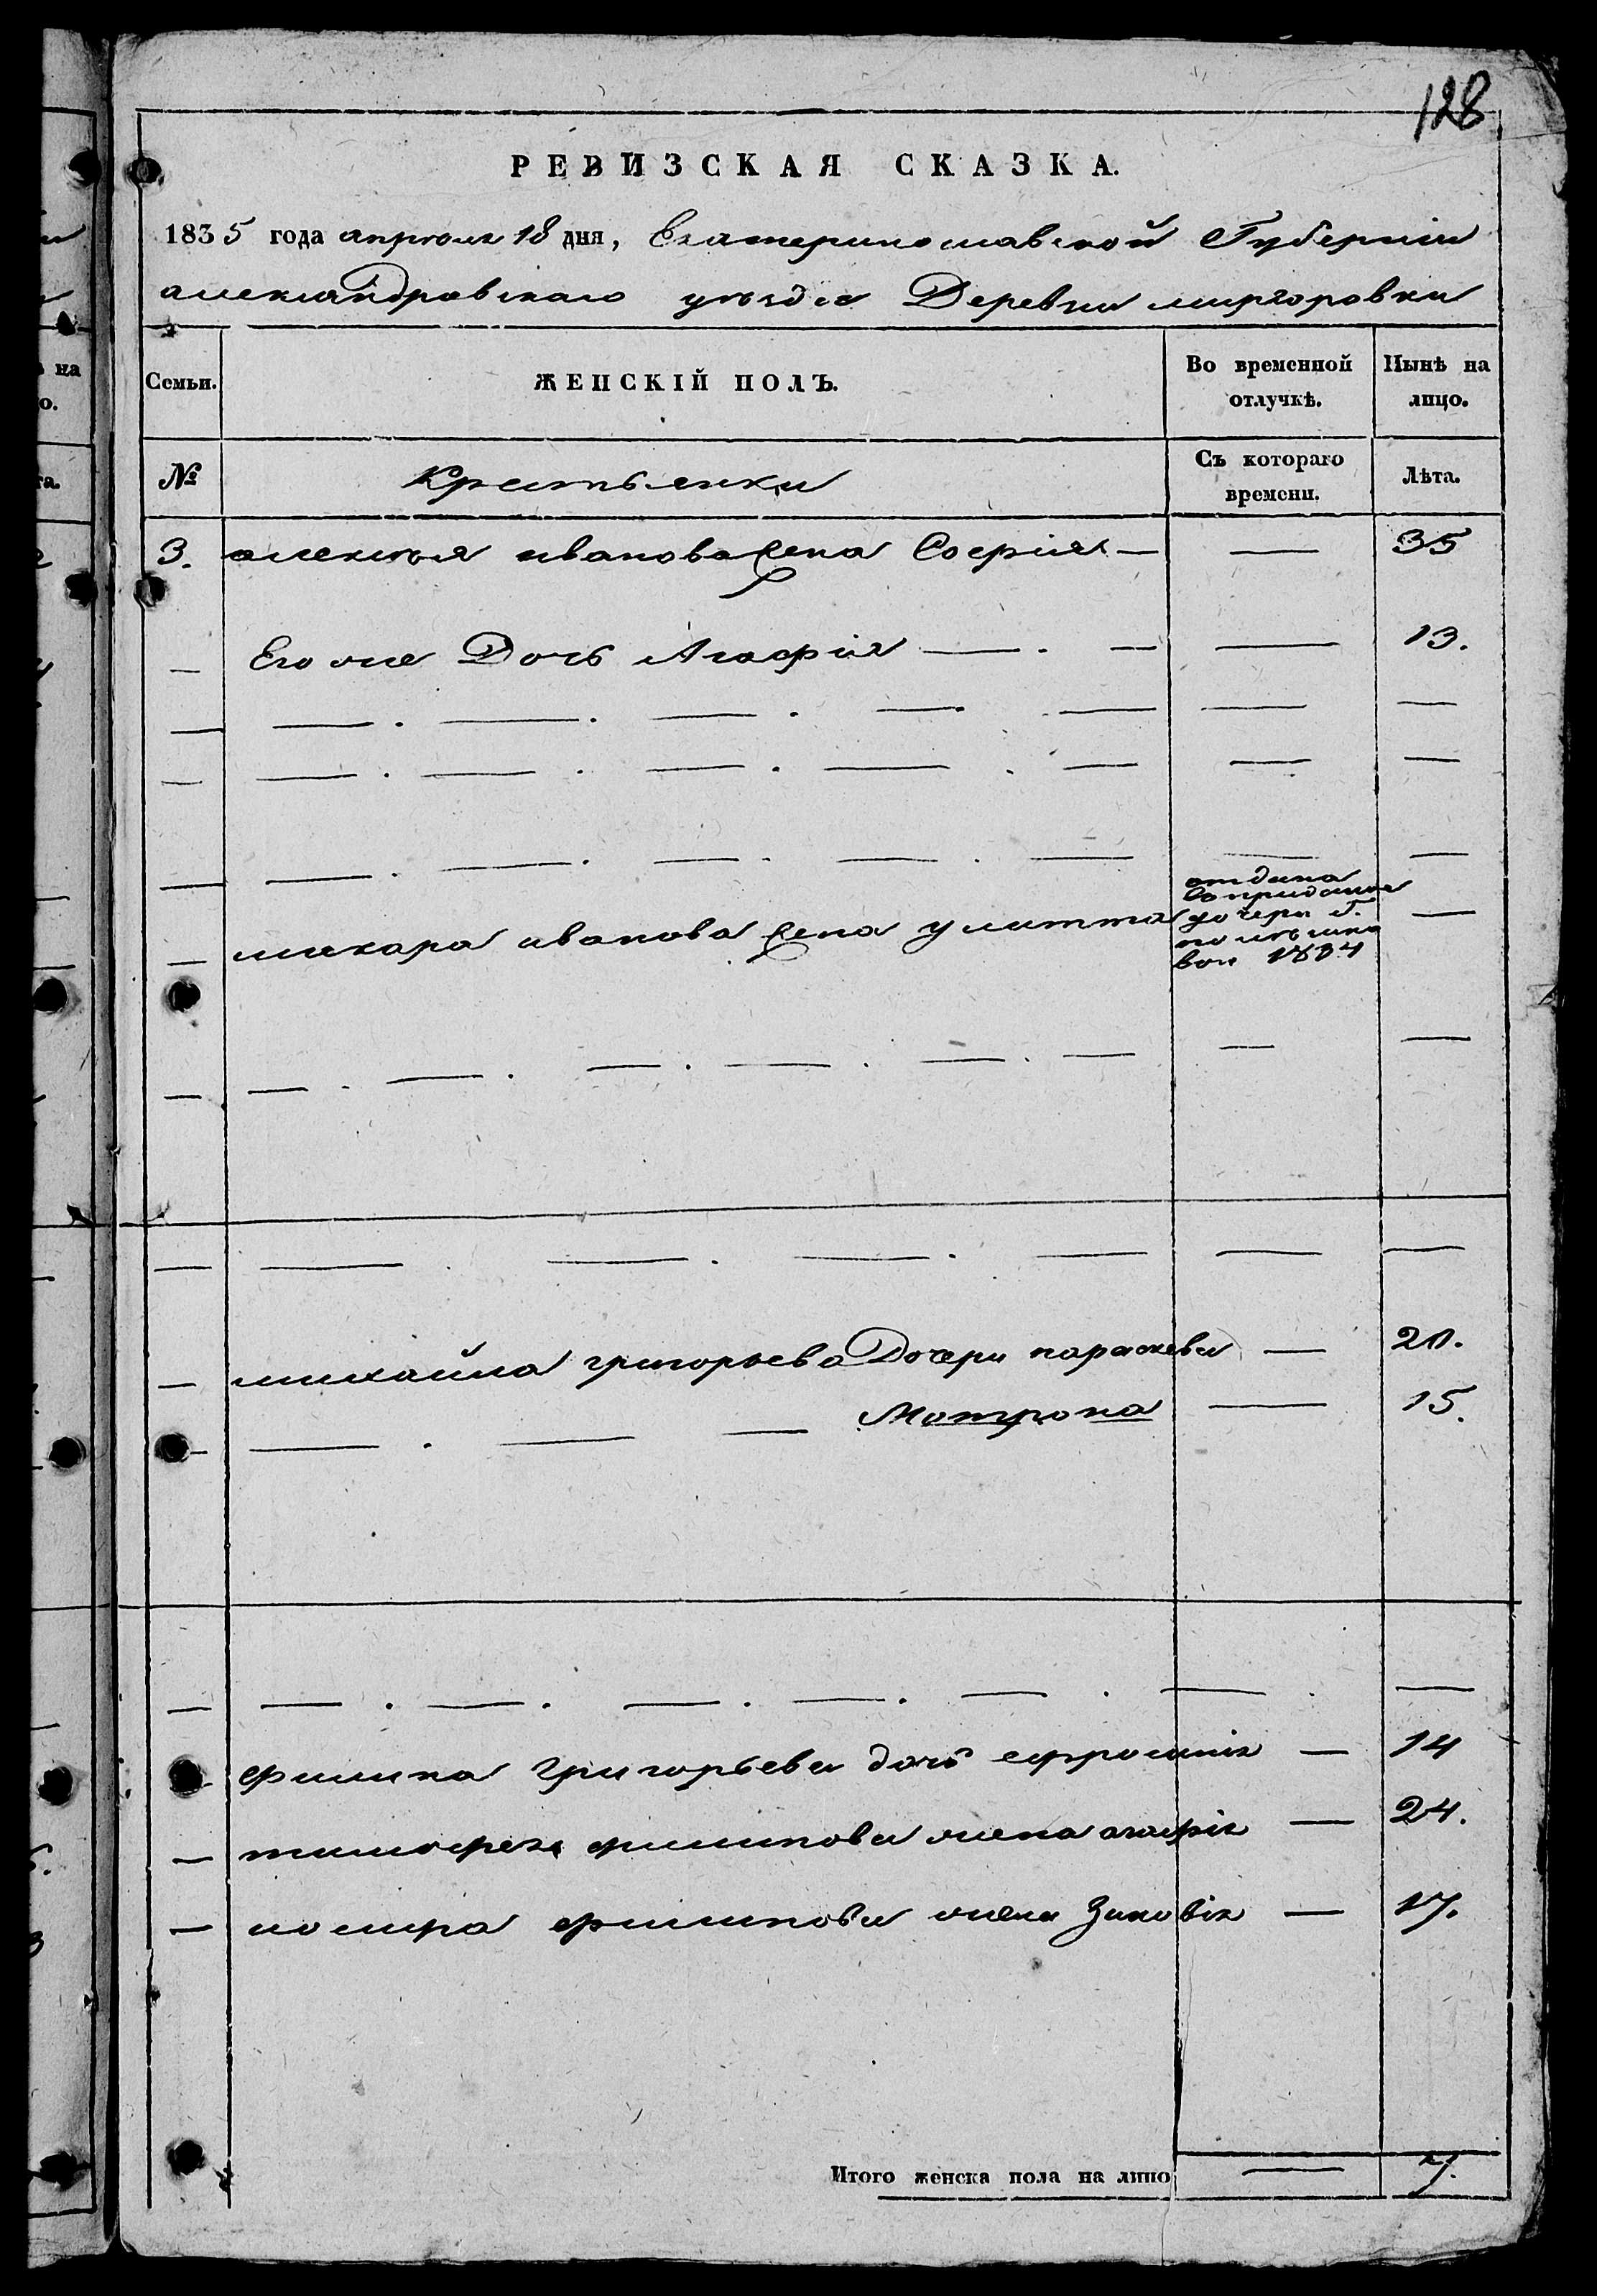 128
РЕВИЗСКАЯ СКАЗКА.
1835 года апреля 18 дня, Екатеринославской Губернiи
александровскаго уезда Деревни миргоровки
Семьи. ЖЕНСКІЙ ПОЛЪ. Во временной отлучкѣ. Нынѣ на лицо.
№ Крестьянки Съ котораго времени. Лѣта.
3. алексѣя иванова жена Софiя — — 35
— Его же Дочь Агафiя — . — — 13.
— макара иванова жена улитта отдана
въ приданое
дочери
вои 1834 —
— михайла григорьева Дочери параскева — 20.
— — Мотрона — 15.
филипа григорьева дочь ефросинiя — 14
— тимофея филипова жена агафiя — 24.
— филипова жена Зиновiя — 17.
Итого женска пола на лицо — 7.